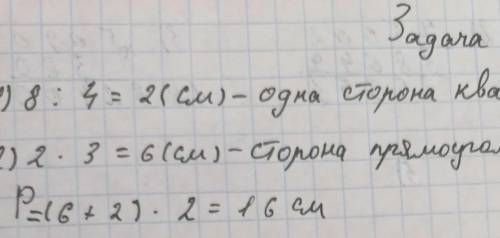 Задача
1) 8 : 4 = 2 (см) - одна сторона ква
2) 2 · 3 = 6 (см) - сторона прямоугол
P = (6 + 2) · 2 = 16 см